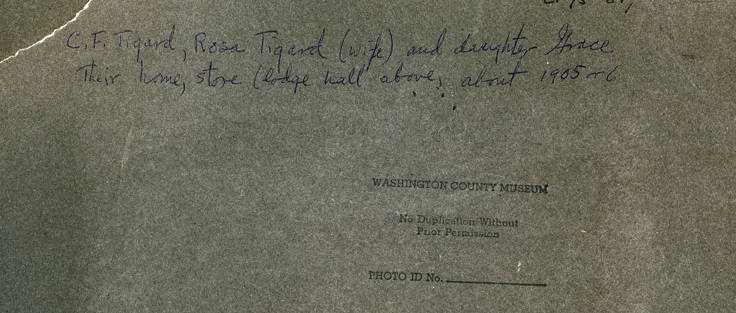 C.F. Tigard, Rosa Tigard (wife) and daughter Grace.
Their home, store (lodge hall above, about 1905 or 6
WASHINGTON COUNTY MUSEUM
No Duplication Without
Prior Permission
PHOTO ID No.